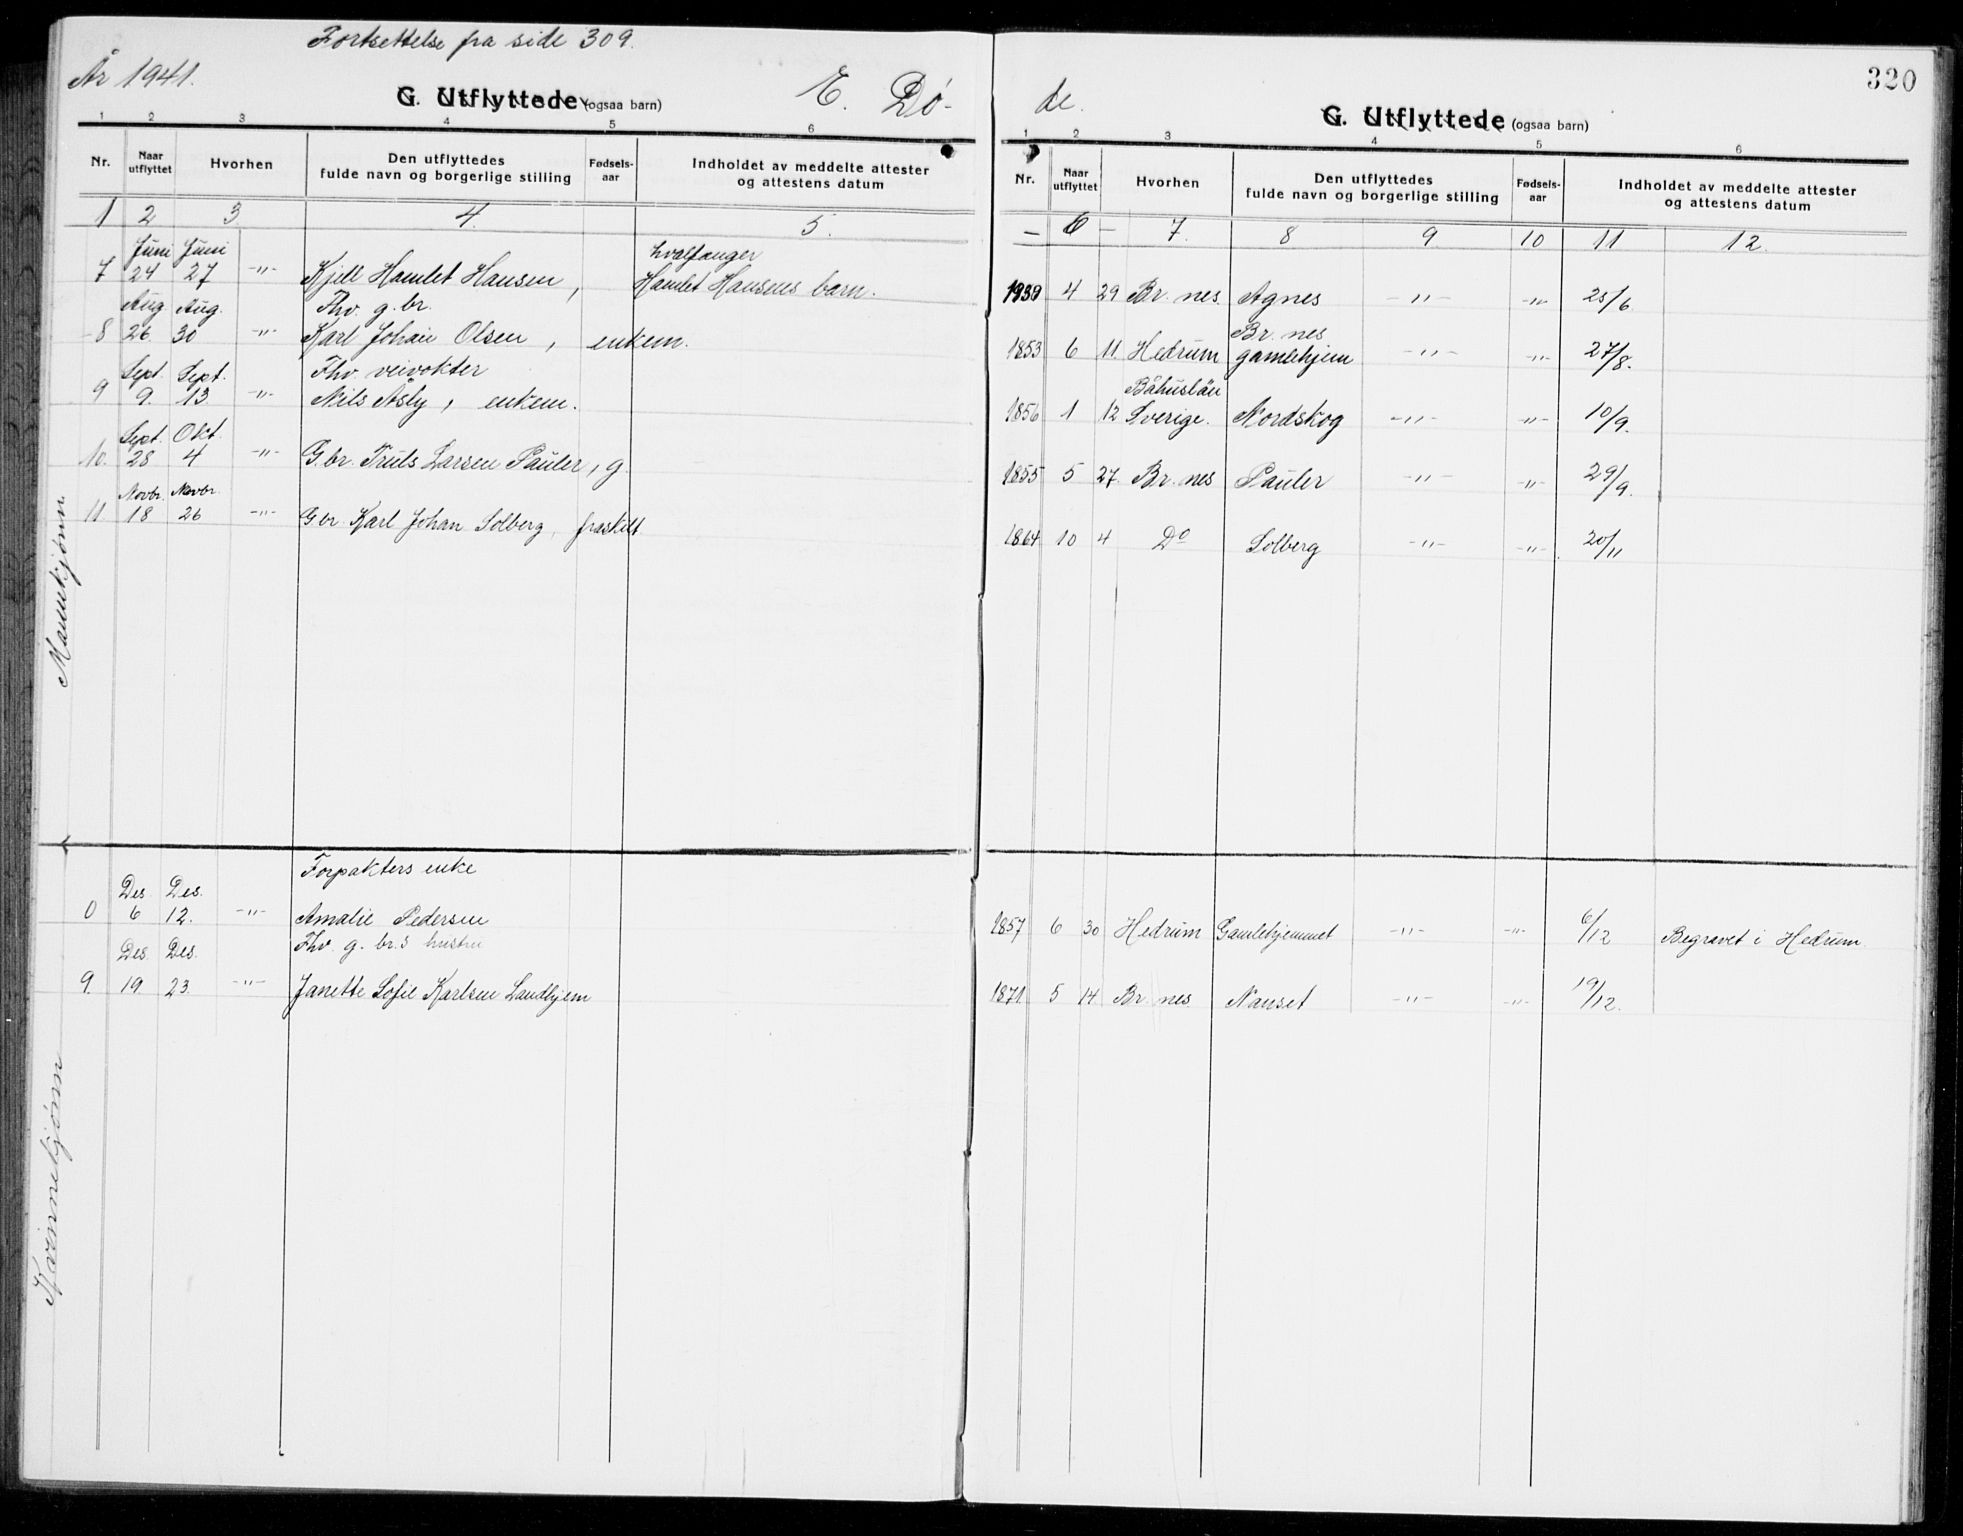 Fortsettelse fra side 309.
År 1941.
G. Utflyttede (ogsaa barn)
E. Dø-
1 2 3 4 5 6
Nr. Naar utflyttet Hvorhen Den utflyttedes fulde navn og borgerlige stilling Fødsels-aar Indholdet av meddelte attester og attestens datum
1 2 3 4. 5.
Juni Juni hvalfanger
7 24 27 -"- Kjell Hamlet Hansen, Hamlet Hansens barn.
Aug Aug. Fhv. g.br.
8 26 30 -"- Karl Johan Olsen, enkem.
Sept. Sept. Fhv. veivokter
9 9. 13 -"- Nils Åsly, enkem.
Sept. Okt.
10. 28 4 -"- G.br. Truls Larsen Pauler, g.
Novbr. Novbr.
11 18 26 -"- Gbr Karl Johan Solberg, fraskilt
Mannkjønn.
Forpakters enke
Des. Des.
0 6 12. -"- Amalie Pedersen
Des. Des. Fhv. g. br.s hustru
9. 19 23. -"- Janette Sofie Karlsen Landhjem
Kvinnekjønn
320
de.
G. Utflyttede (ogsaa barn)
1 2 3 4 5 6
Nr. Naar utflyttet Hvorhen Den utflyttedes fulde navn og borgerlige stilling Fødsels-aar Indholdet av meddelte attester og attestens datum
- 6 - 7. 8 9 10 11 12.
1939 4 29 Br.nes Agnes -"- -"- 25/6.
Br. nes
1853 6 11. Hedrum gamlehjem -"- -"- 27/8.
Båhuslän
1856 1 12 Sverige. Nordskog -"- -"- 10/9.
1855 5 27. Br.nes Pauler -"- -"- 29/9.
1864 10 4 Do Solberg -"- -"- 20/11
1857 6 30 Hedrum Gamlehjemmet -"- -"- 6/12 Begravet i Hedrum.
1871. 5 14. Br.nes. Nanset -"- -"- 19/12.